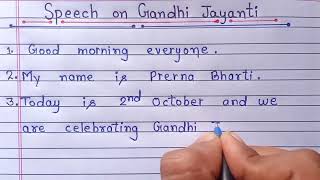 Speech on Gandhi Jayanti
1. Good morning everyone.
2. My name is Prerna Bharti.
3. Today is 2nd October and we
are celebrating Gandhi